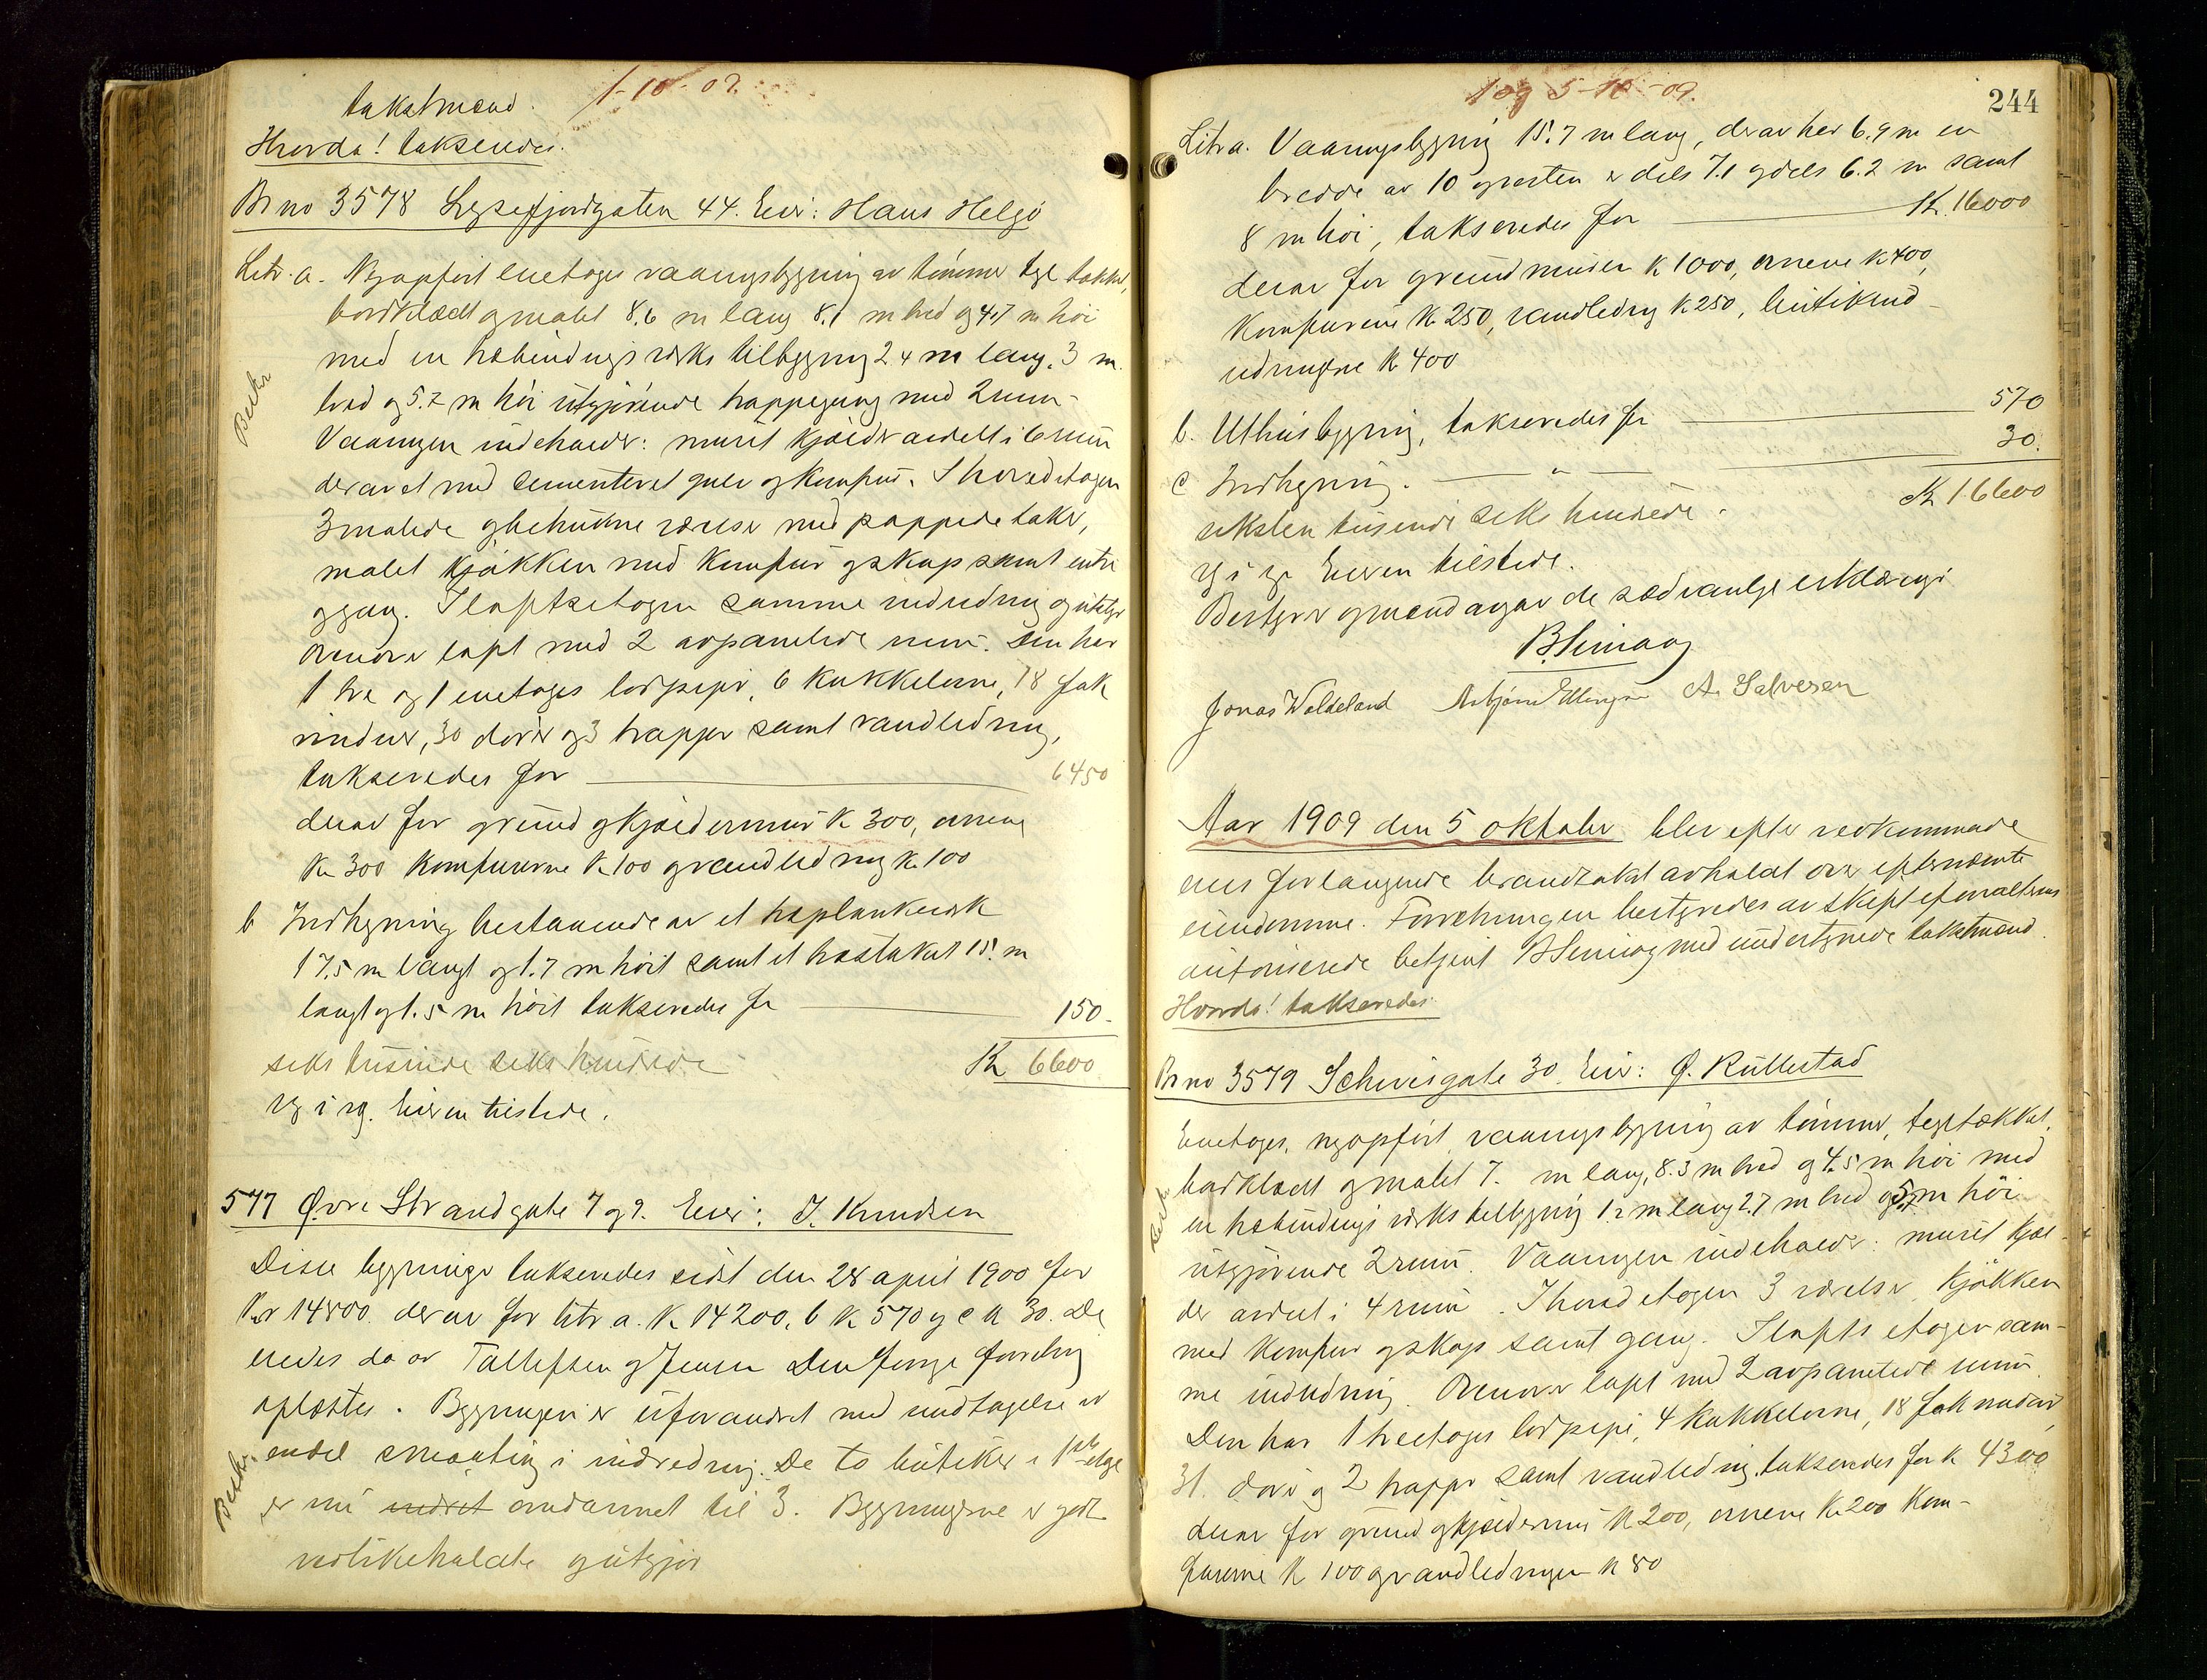 takstmænd. 1-10-09.
Hvorda! takseredes.
Br no 3578 Lysefjordgaten 44. Eier: Hans Helgø
Litr. a. Nyopført enetages vaaningsbygning av tømmer tegltækket,
bordklædt og malet 8.6 m lang 8.1 m bred og 4.7 m høi
med en træbindingsverks tilbygning 2.4 m lang, 3 m.
bred og 5.2 m høi utgjørende trappegang med 2 rum.
Vaaningen indeholder: muret kjælder avdelt i 6 rum
derav et med cementeret gulv og komfur. I hovedetagen
3 malede og betrukne værelser med pappede taker,
malet kjøkken med komfur og skap samt entre
og gang. I loftsetagen samme indredning og utstyr
Ovenover loft med 2 avpanelede rum. Den har
1 tre og 1 enetages lodpiper, 6 kakkelovne, 18 fak
vinduer, 30 dører og 3 trapper samt vandledning,
takseredes for 6450
derav for grund og kjældermur K 300, ovnene
K 300 komfurerne K 100 og vandledning K 100
b Indhegning bestaaende av et træplankeverk
17.5 m langt og 1.7 m høit samt et træstakit 15. m
langt og 1.5 m høit takseredes for 150.
seks tusinde seks hundrede K 6600
Eieren tilstede.
577 Øvre Strandgate 7 og 9. Eier: J. Knudsen
Disse bygninger takseredes sidst den 28 april 1900 for
Kr 14800. derav for litr a. K 14200, b K 570 og c K 30. De
eiedes da av Tallefsen og Jensen Den forrige forretning
oplæstes. Bygningen er uforandret med undtagelse av
endel smaating i indredning. De to butiker i 1ste etage
er nu indret omdannet til 3. Bygningerne er godt
vedlikeholdte og utgjør
Beskr.
Beskr.
1 og 5-10-09. 244
Litr a. Vaaningsbygning 15.7 m lang, derav har 6.9 m en
bredde av 10 og resten er dels 7.1 og dels 6.2 m samt
8 m høi, takseredes for K. 16000
derav for grundmuren K 1000, ovnene K 400,
komfurene K 250, vandledning K 250, butikind-
redningerne K 400
b. Uthusbygning, takseredes for 570
c Indhegning. — " — 30.
seksten tusende seks hundrede. K 16600
Eieren tilstede.
Bestyrer og mænd avgav de sædvanlige erklæringer
Jonas Waldeland Asbjørn Ellingsen A. Salvesen
Aar 1909 den 5 oktober blev efter vedkommende
eiers forlangende brandtakst avholdt over efternævnte
eiendomme. Forretningen bestyredes av skifteforvalterens
autoriserede betjent med undertegnede takstmænd.
Hvorda! takseredes.
Br no 3579 Schwesgate 30. Eier: Ø. Kullestad
Enetages, nyopført vaaningsbygning av tømmer, tegltækket,
bordklædt og malet 7. m lang, 8.3 m bred og 4.5 m høi med
en træbindings verks tilbygning 1.2 m lang 2.7 m bred og 5.7 m høi
utgjørende 2 rum. Vaaningen indeholder: muret kjæl-
der avdelt i 4 rum. I hovedetagen 3 værelser, kjøkken
med komfur og skap samt gang. I loftsetagen sam-
me indredning. Ovenover loft med 2 avpanelede rum.
Den har 1 treetages lodpipe, 4 kakkelovne, 18 fak vinduer,
31. dører og 2 trapper samt vandledning, takseredes for K 4300
derav for grund og kjældermur K 200, ovnene K 200 kom-
furerne K 100 og vandledningen K 80
Beskr.